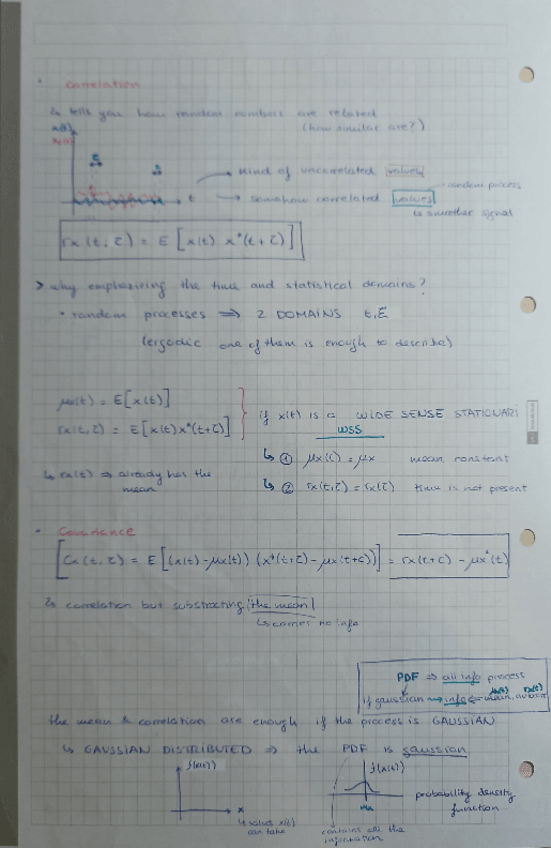 Correlation
↳ tells you how random numbers are related
(how similar are?)
x(t)
t
→ kind of uncorrelated values
random process
→ somehow correlated values
↳ smoother signal
rx (t, τ) = E [x(t) x*(t+τ)]
> why emphasizing the time and statistical domains?
• random processes ⇒ 2 DOMAINS t, E
(ergodic one of them is enough to describe)
μx(t) = E[x(t)]
rx(t,τ) = E[x(t)x*(t+τ)]
if x(t) is a WIDE SENSE STATIONARI
WSS
↳ ① μx(t) = μx mean constant
↳ rx(t) ⇒ already has the
mean
↳ ② rx(t,τ) = rx(τ) time is not present
• Covariance
Cx (t, τ) = E [(x(t) - μx(t)) (x*(t+τ) - μx(t+τ))] = rx(t+τ) - μx²(t)
↳ correlation but substracting the mean
↳ carries no info
PDF ⇒ all info process
μx(t) rx(t)
if gaussian → info ⇐ mean,
the mean & correlation are enough if the process is GAUSSIAN
↳ GAUSSIAN DISTRIBUTED ⇒ the PDF is gaussian
f(x(t))
x
↳ values x(t)
can take
f(x(t))
μx
probability density
function
contains all the
information